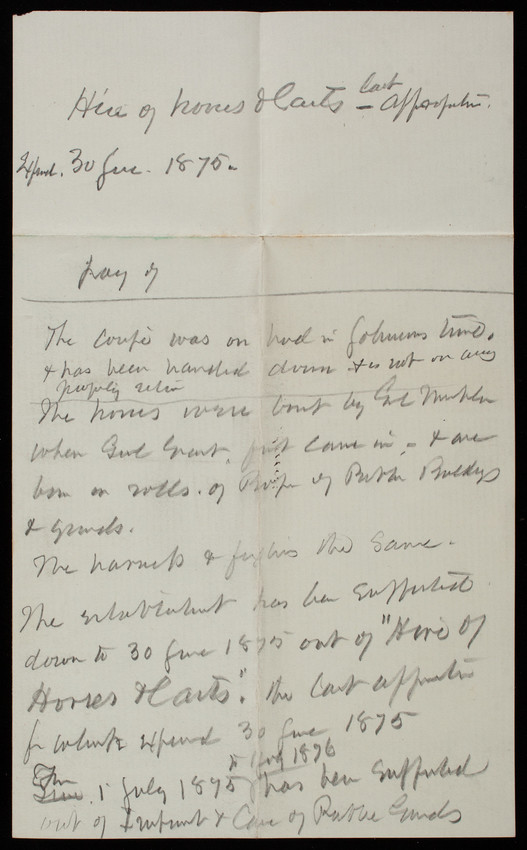 Hire of horses & Carts – last appropriation.
Expend. 30 June. 1875.
pay of
The Coupé was on hand in Johnsons time.
& has been handed down & is not on any
property return
The horses were bout by Col Michler
when Genl Grant first came in, – & are
born on rolls. of Prop of Public Buildgs
& grounds.
The harness & the same.
The establishment has been supported
down to 30 June 1875 out of "Hire of
Horses & Carts". the last appropriation
for which expired 30 June 1875
to 1 July 1876
From 1 July 1875 has been supported
out of Improvmt & Care of Public Grounds